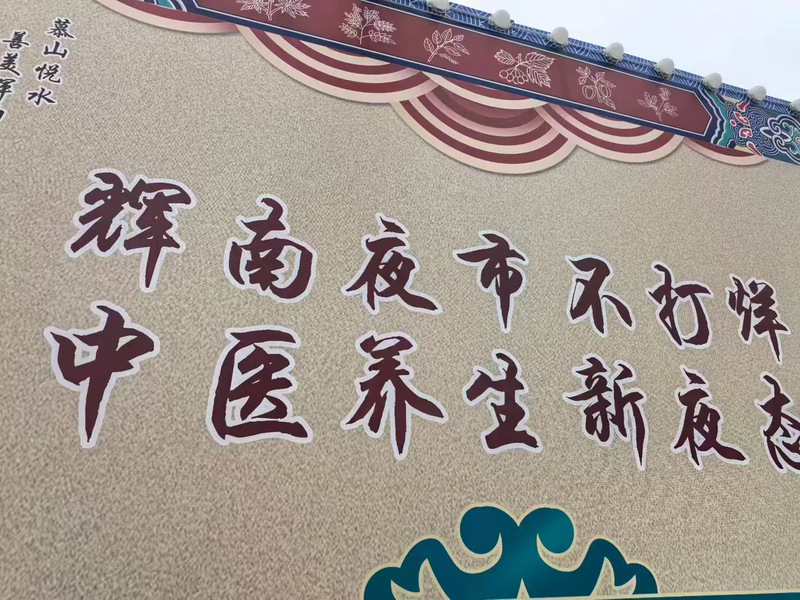 慕山悦水
善美辉
辉南夜市不打烊
中医养生新夜态